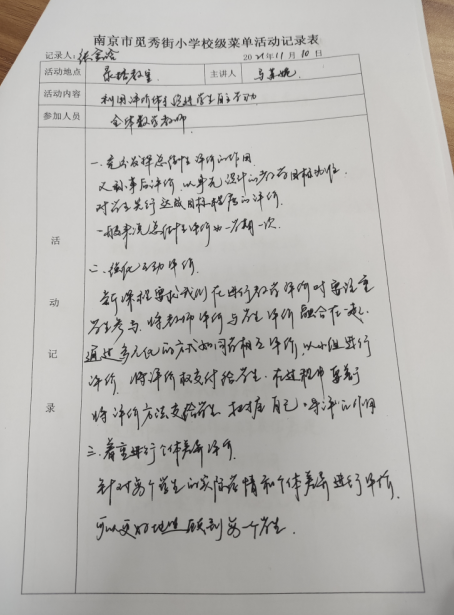 南京市觅秀街小学校级菜单活动记录表
记录人: 2021年11月10日
活动地点 录播教室 主讲人
活动内容 利用评价体系促进学生自主劳动
参加人员 全体数学教师
活动记录
一.充分发挥总结性评价的作用
又称事后评价,以单元设计的教学目标为准
对学生实行达成目标程度的评价.
一般来说总结性评价为一学期一次.
二.强化互动评价.
新课程要求我们在进行教学评价时要注重
学生参与,将教师评价与学生评价融合在一起.
通过多元化的方式如同学相互评价,以小组进行
评价,将评价权交付给学生.在过程中要着
将评价方法交给学生,自己 导评的作用
三.着重进行个体差异评价
针对每个学生的实际学情和个体差异进行评价.
可以更好地照顾到每一个学生.